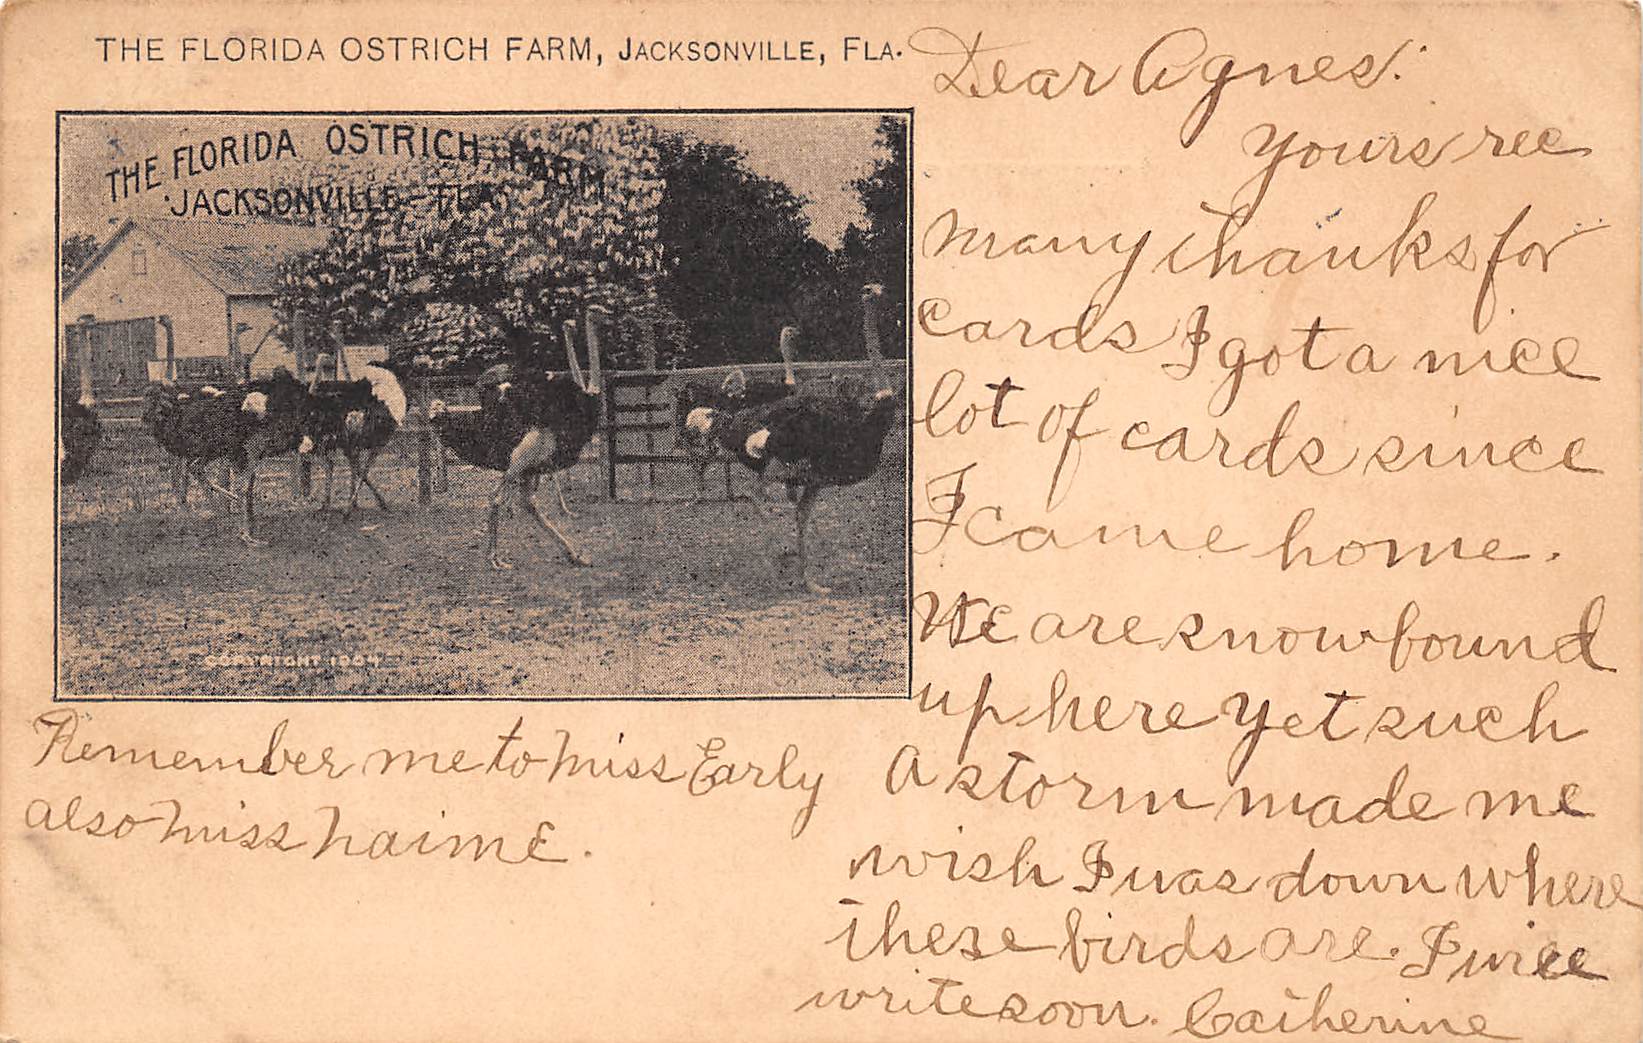 THE FLORIDA OSTRICH FARM, JACKSONVILLE, FLA.
THE FLORIDA OSTRICH FARM
JACKSONVILLE - FLA.
COPYRIGHT 1904
Dear Agnes:
Yours rec
many thanks for
cards I got a nice
lot of cards since
I came home.
We are snow bound
up here yet such
a storm made me
wish I was down where
these birds are. I will
write soon. Catherine
Remember me to Miss Early
also Miss Naime.